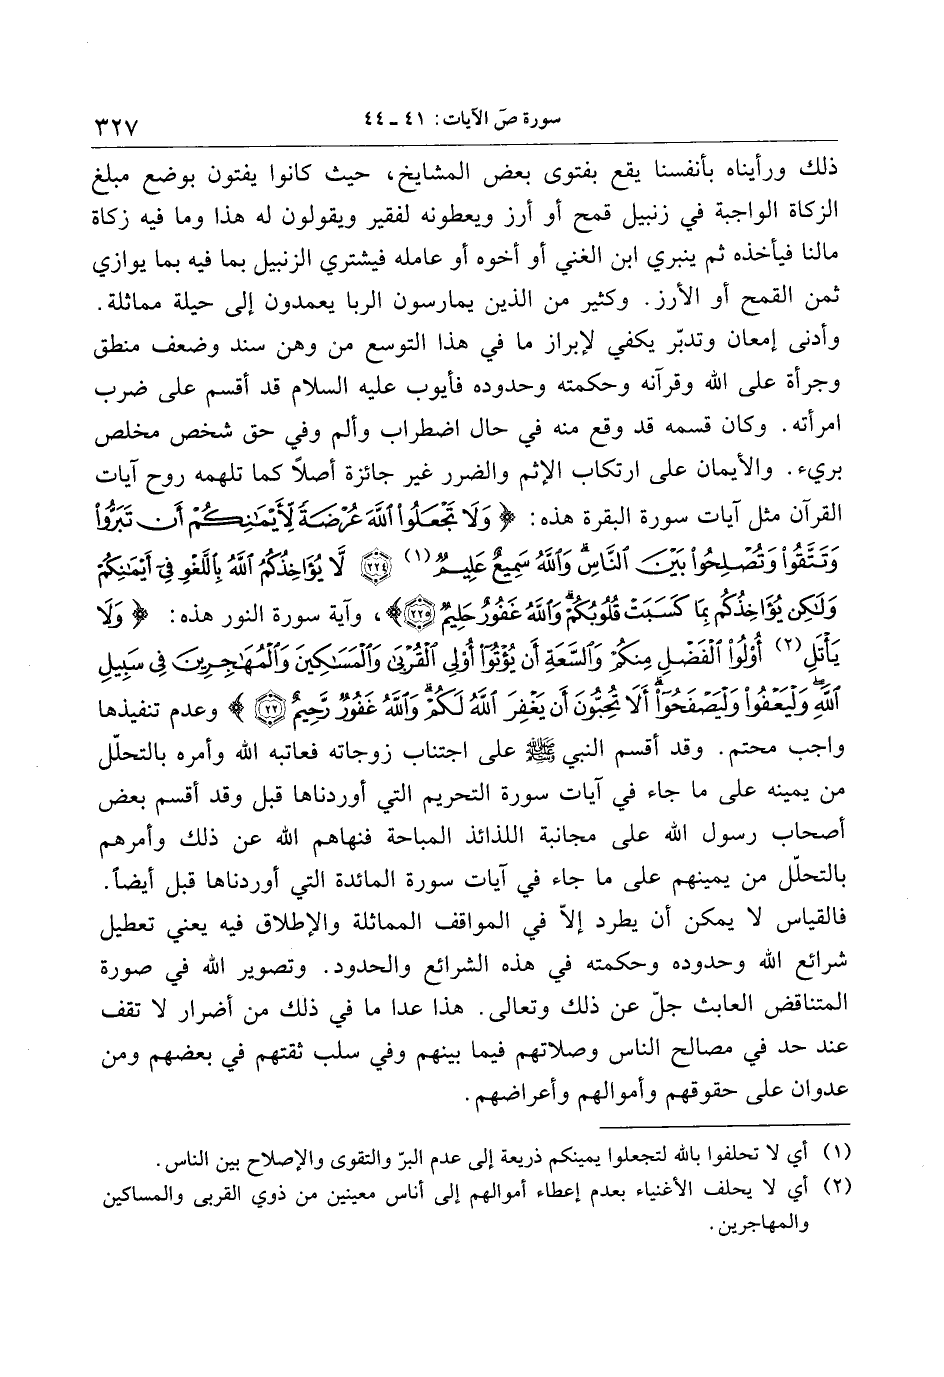 سورة صۤ الآيات: ٤١ - ٤٤
٣٢٧
ذلك ورأيناه بأنفسنا يقع بفتوى بعض المشايخ، حيث كانوا يفتون بوضع مبلغ
الزكاة الواجبة في زنبيل قمح أو أرز ويعطونه لفقير ويقولون له هذا وما فيه زكاة
مالنا فيأخذه ثم ينبري ابن الغني أو أخوه أو عامله فيشتري الزنبيل بما فيه بما يوازي
ثمن القمح أو الأرز. وكثير من الذين يمارسون الربا يعمدون إلى حيلة مماثلة.
وأدنى إمعان وتدبّر يكفي لإبراز ما في هذا التوسع من وهن سند وضعف منطق
وجرأة على الله وقرآنه وحكمته وحدوده فأيوب عليه السلام قد أقسم على ضرب
امرأته. وكان قسمه قد وقع منه في حال اضطراب وألم وفي حق شخص مخلص
بريء. والأيمان على ارتكاب الإثم والضرر غير جائزة أصلاً كما تلهمه روح آيات
القرآن مثل آيات سورة البقرة هذه: ﴿وَلَا تَجۡعَلُواْ ٱللَّهَ عُرۡضَةٗ لِّأَيۡمَٰنِكُمۡ أَن تَبَرُّواْ
وَتَتَّقُواْ وَتُصۡلِحُواْ بَيۡنَ ٱلنَّاسِۚ وَٱللَّهُ سَمِيعٌ عَلِيمٞ (١) ٢٢٤ لَّا يُؤَاخِذُكُمُ ٱللَّهُ بِٱللَّغۡوِ فِيٓ أَيۡمَٰنِكُمۡ
وَلَٰكِن يُؤَاخِذُكُم بِمَا كَسَبَتۡ قُلُوبُكُمۡۗ وَٱللَّهُ غَفُورٌ حَلِيمٞ ٢٢٥﴾، وآية سورة النور هذه: ﴿وَلَا
يَأۡتَلِ (٢) أُوْلُواْ ٱلۡفَضۡلِ مِنكُمۡ وَٱلسَّعَةِ أَن يُؤۡتُوٓاْ أُوْلِي ٱلۡقُرۡبَىٰ وَٱلۡمَسَٰكِينَ وَٱلۡمُهَٰجِرِينَ فِي سَبِيلِ
ٱللَّهِۖ وَلۡيَعۡفُواْ وَلۡيَصۡفَحُوٓاْۗ أَلَا تُحِبُّونَ أَن يَغۡفِرَ ٱللَّهُ لَكُمۡۗ وَٱللَّهُ غَفُورٞ رَّحِيمٌ ٢٢﴾ وعدم تنفيذها
واجب محتم. وقد أقسم النبي ﷺ على اجتناب زوجاته فعاتبه الله وأمره بالتحلّل
من يمينه على ما جاء في آيات سورة التحريم التي أوردناها قبل وقد أقسم بعض
أصحاب رسول الله على مجانبة اللذائذ المباحة فنهاهم الله عن ذلك وأمرهم
بالتحلّل من يمينهم على ما جاء في آيات سورة المائدة التي أوردناها قبل أيضاً.
فالقياس لا يمكن أن يطرد إلاّ في المواقف المماثلة والإطلاق فيه يعني تعطيل
شرائع الله وحدوده وحكمته في هذه الشرائع والحدود. وتصوير الله في صورة
المتناقض العابث جلّ عن ذلك وتعالى. هذا عدا ما في ذلك من أضرار لا تقف
عند حد في مصالح الناس وصلاتهم فيما بينهم وفي سلب ثقتهم في بعضهم ومن
عدوان على حقوقهم وأموالهم وأعراضهم.
(١) أي لا تحلفوا بالله لتجعلوا يمينكم ذريعة إلى عدم البرّ والتقوى والإصلاح بين الناس.
(٢) أي لا يحلف الأغنياء بعدم إعطاء أموالهم إلى أناس معينين من ذوي القربى والمساكين
والمهاجرين.